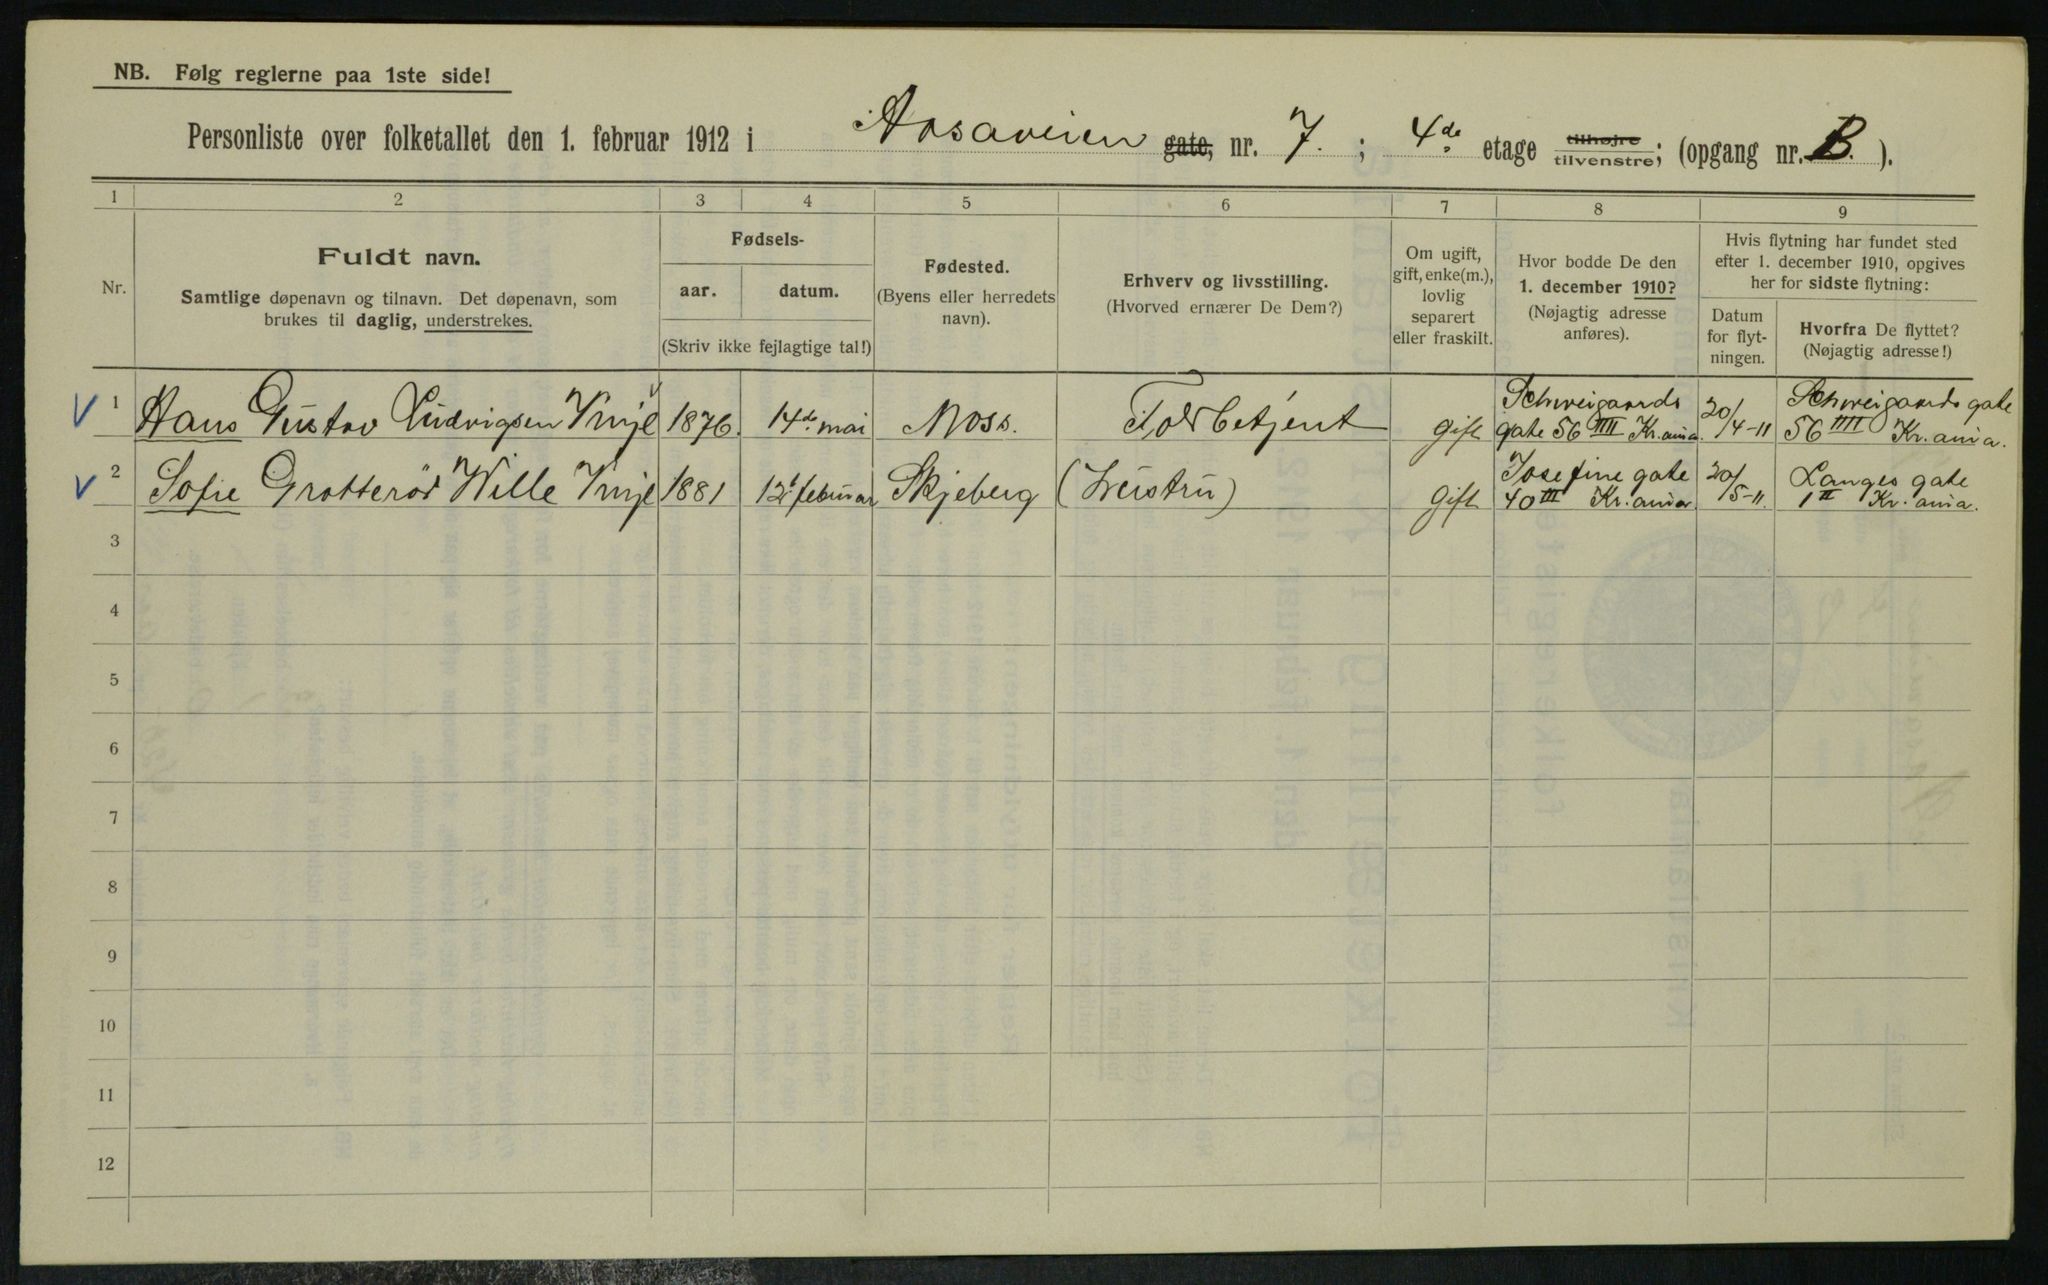 NB. Følg reglerne paa 1ste side!
Personliste over folketallet den 1. februar 1912 i Aasaveien gate, nr. 7. ; 4de etage tilhøjre tilvenstre; (opgang nr. B. ).
1 2 3 4 5 6 7 8 9
Nr.
Fuldt navn.
Samtlige døpenavn og tilnavn. Det døpenavn, som
brukes til daglig, understrekes.
Fødsels-
aar. datum.
(Skriv ikke fejlagtige tal!)
Fødested.
(Byens eller herredets
navn).
Erhverv og livsstilling.
(Hvorved ernærer De Dem?)
Om ugift,
gift, enke(m.),
lovlig
separert
eller fraskilt.
Hvor bodde De den
1. december 1910?
(Nøjagtig adresse
anføres).
Hvis flytning har fundet sted
efter 1. december 1910, opgives
her for sidste flytning:
Datum
for flyt-
ningen.
Hvorfra De flyttet?
(Nøjagtig adresse!)
1 Hans Gustav Ludvigsen Vinje 1876. 14de mai Moss. Toldbetjent gift Schweigaards gate 56 IIII Kr.ania. 20/4-11 Schweigaards gate 56 IIII Kr.ania.
2 Sofie Grotterød Wille Vinje 1881 12te februar Skjeberg (Hustru) gift Josefine gate 40 III Kr.ania 20/5-11. Langes gate 1 II Kr.ania.
3
4
5
6
7
8
9
10
11
12